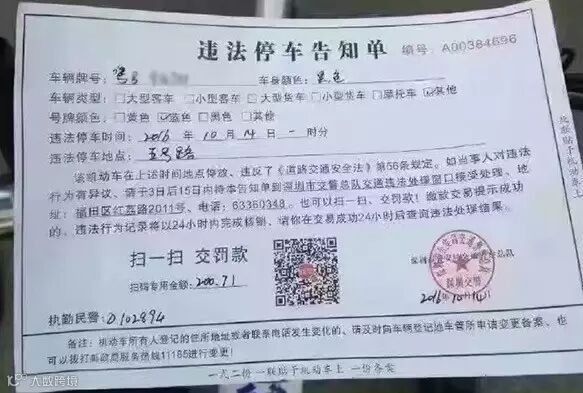 违法停车告知单 编号: A00384696
车辆牌号: 粤B 车身颜色: 黑色
车辆类型: □大型客车 □小型客车 □大型货车 □小型货车 □摩托车 ☑其他
号牌颜色: □黄色 ☑蓝色 □黑色 □其他
违法停车时间: 2016 年 10 月 14 日 一 时 分
违法停车地点: 五号路
该机动车在上述时间地点停放、违反了《道路交通安全法》第56条规定。如当事人对违法
行为有异议、请于3日后15日内持本告知单到深圳市交警总队交通违法处理窗口接受处理、地
址: 福田区红荔路2011号、电话: 63360348. 也可以扫一扫、交罚款! 缴款交易提示成功
的、违法行为记录将以24小时内完成核销、请你在交易成功24小时后查询违法处理结果。
扫一扫 交罚款
扫码专用金额: 200.71
深圳交警
2016.10.14
执勤民警: 0102894
备注: 机动车所有人登记的住所地址或者联系电话发生变化的、请及时向车辆登记地车管所申请变更备案、也
可以拨打邮政局服务热线11185进行变更!
一式二份 一联贴于机动车上 一份备案
此联贴于机动车上
大数跨境